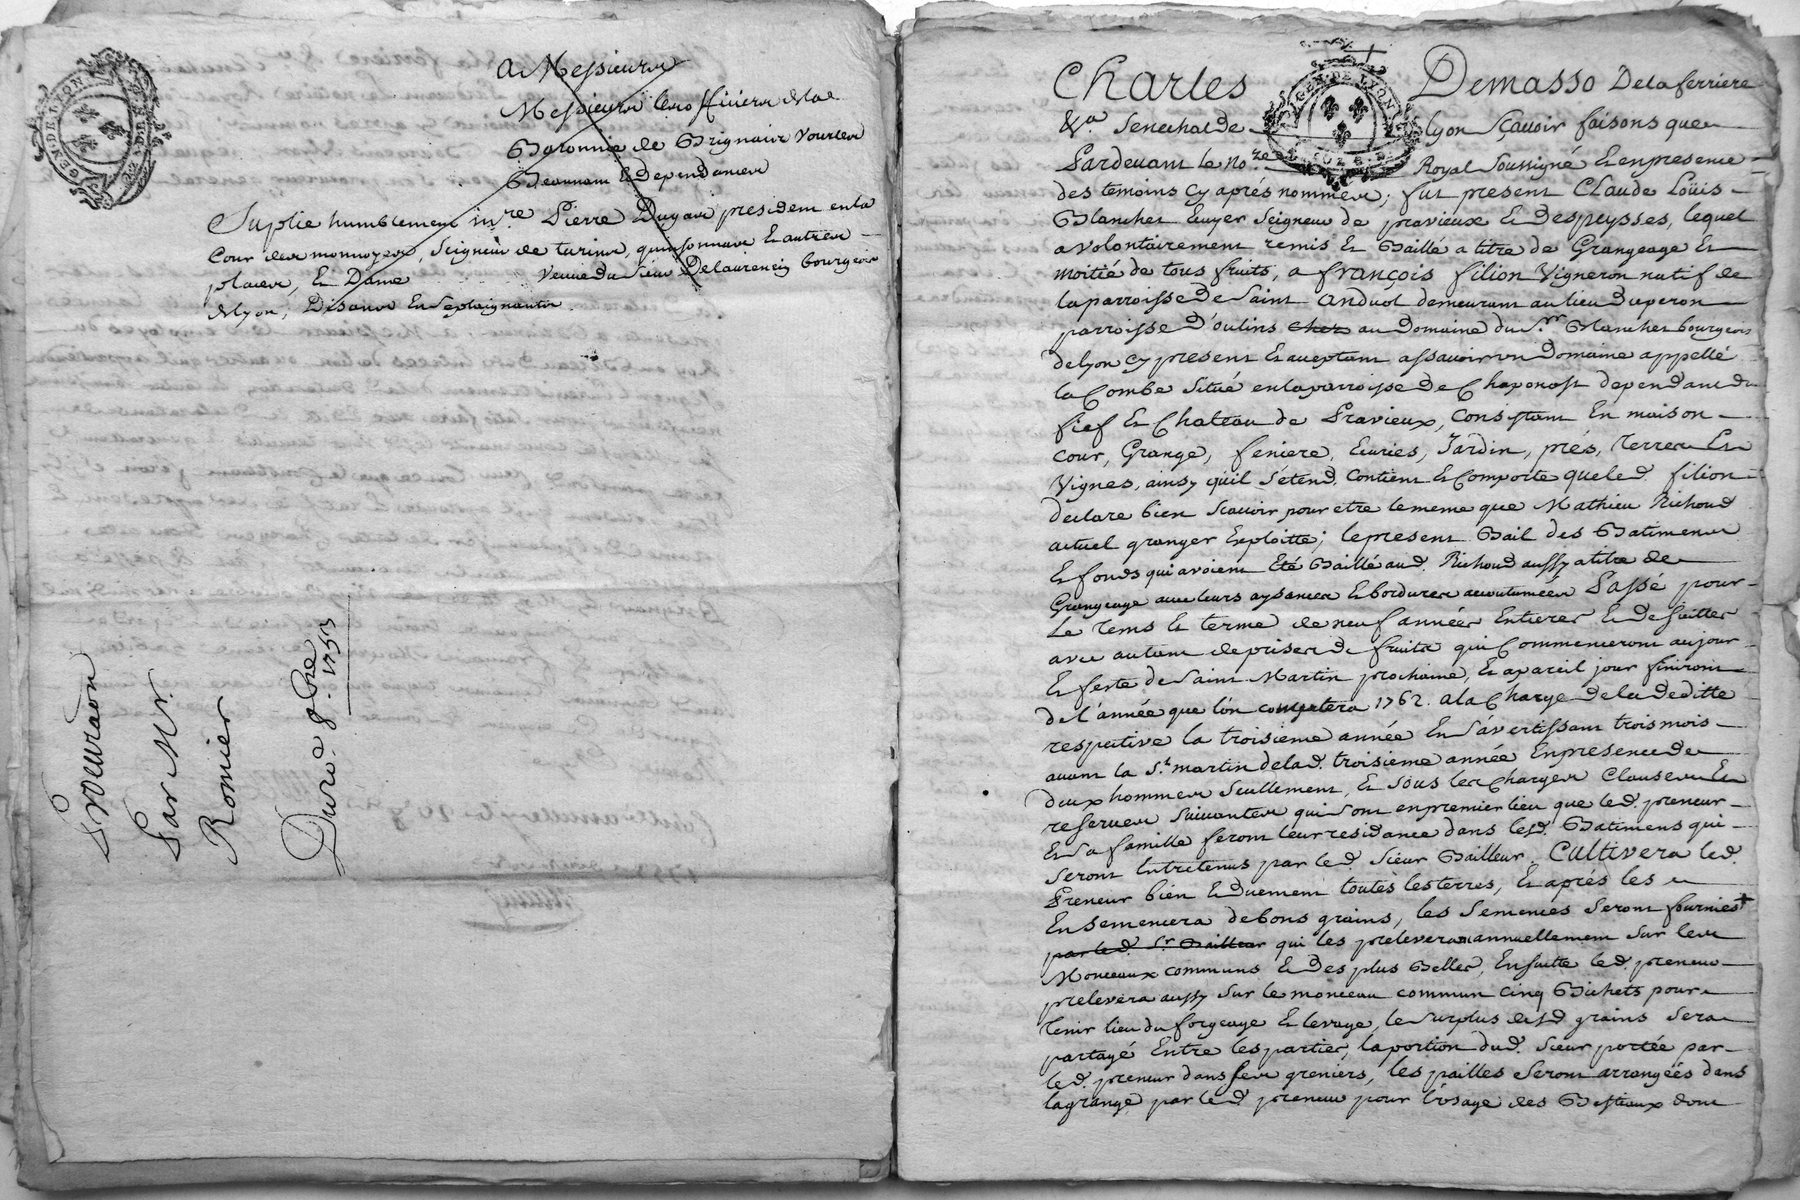 GEN. DE LYON
A Messieurs
Messieurs les officiers de la
Baronnie de Brignais Vourles
Beaunant & dependances
Suplie humblement mre Pierre Dugas president en la
Cour des monnoyes, Seigneur de turins, quinsonnas & autres
places, & Dame veuve du Sieur Delaurencin bourgeois
de Lyon, Disants
Procuraon
Par Mr.
Romier
Du 8bre 1753
GEN. DE LYON
Charles Demasso De la ferriere
&a Senechal de Lyon Sçavoir faisons que
Pardevant le Nore Royal Soussigné & en presence
des temoins cy aprés nommés; fut present Claude Loüis
Blanchet Ecuyer Seigneur de pravieux & Despeysses, lequel
a volontairement remis & Baillé a titre de Grangeage &
moitié de tous fruits, a françois filion Vigneron natif de
la parroisse de Saint anduol demeurant au lieu duperon
parroisse D'oulins chez au Domaine du Sr. Blanchet bourgeois
de Lyon cy present & acceptant assavoir un Domaine appellé
la Combe Situé en la parroisse de Chaponost dependant du
fief & Chateau de Pravieux, Consistant En maison
cour, Grange, feniere, Ecuries, Jardin, prés, Terres &
Vignes, ainsy qu'il s'étend, Contient & Comporte que led. filion
declare bien Scavoir pour etre le meme que Mathieu Richoud
actuel granger Exploitte; le present Bail des Batimens
& fonds qui avoient Eté Baillé aud. Richoud aussy a titre de
Grangeage avec leurs aysances & bordures accoutumées Passé pour
Le Tems & terme de neuf années Entieres & de suitte
avec autant de prises de fruits qui Commenceront au jour
& feste de Saint Martin prochaine, & a pareil jour finiront
de l'année que l'on comptera 1762. a la Charge de la deditte
respective la troisieme année En s'avertissant trois mois
avant la St. martin de lad. troisieme année En presence de
deux hommes seullement, & sous les Charges Clauses &
reserves suivantes qui sont en premier lieu que led. preneur
& Sa famille feront leur residance dans lesd. Batimens qui
Seront Entretenus par led. Sieur Bailleur. Cultivera led.
Preneur bien & Duement toutes les terres, & aprés les
Ensemencera de bons grains, les Semences Seront fournies +
par led. Sr. Bailleur qui les prelevera annuellement Sur les
Monceaux communs & des plus Belles, Ensuitte led. preneur
prelevera aussy Sur le monceau commun cinq Bichets pour
Tenir lieu du forgeage & levage, le Surplus desd. grains Sera
partagé Entre les parties, la portion dud. Sieur portée par
led. preneur dans ses greniers, les pailles Seront arrangées dans
la grange par led. preneur pour l'usage des Bestiaux dont